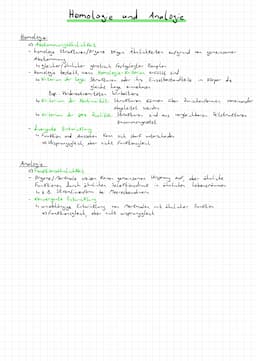 Homologie und Analogie
Homologie:
=> Abstammungsähnlichkeit
- homologe Strukturen/Organe zeigen Ähnlichkeiten aufgrund von gemeinsamer
Abstammung
↳ gleicher/ähnlicher genetisch festgelegter Bauplan
- Homologie besteht, wenn Homologie-Kriterien erfüllt sind
↳ Kriterium der Lage: Strukturen oder ihre Einzelbestandteile im Körper die
gleiche Lage einnehmen
Bsp.: Vorderextremitäten Wirbeltiere
↳ Kriterium der Kontinuität: Strukturen können über Zwischenformen voneinander
abgeleitet werden
↳ Kriterium der spez. Qualität: Strukturen sind aus vergleichbaren Teilstrukturen
zusammengesetzt
- divergente Entwicklung
↳ Funktion und Aussehen kann sich stark unterscheiden
=> Ursprungsgleich, aber nicht funktionsgleich
Analogie:
=> Funktionsähnlichkeit
- Organe/Merkmale weisen keinen gemeinsamen Ursprung auf, aber ähnliche
Funktionen durch ähnlichen Selektionsdruck in ähnlichen Lebensräumen
↳ z.B. Stromlinienform bei Meeresbewohnern
- konvergente Entwicklung
↳ unabhängige Entwicklung von Merkmalen mit ähnlicher Funktion
=> funktionsgleich, aber nicht ursprungsgleich